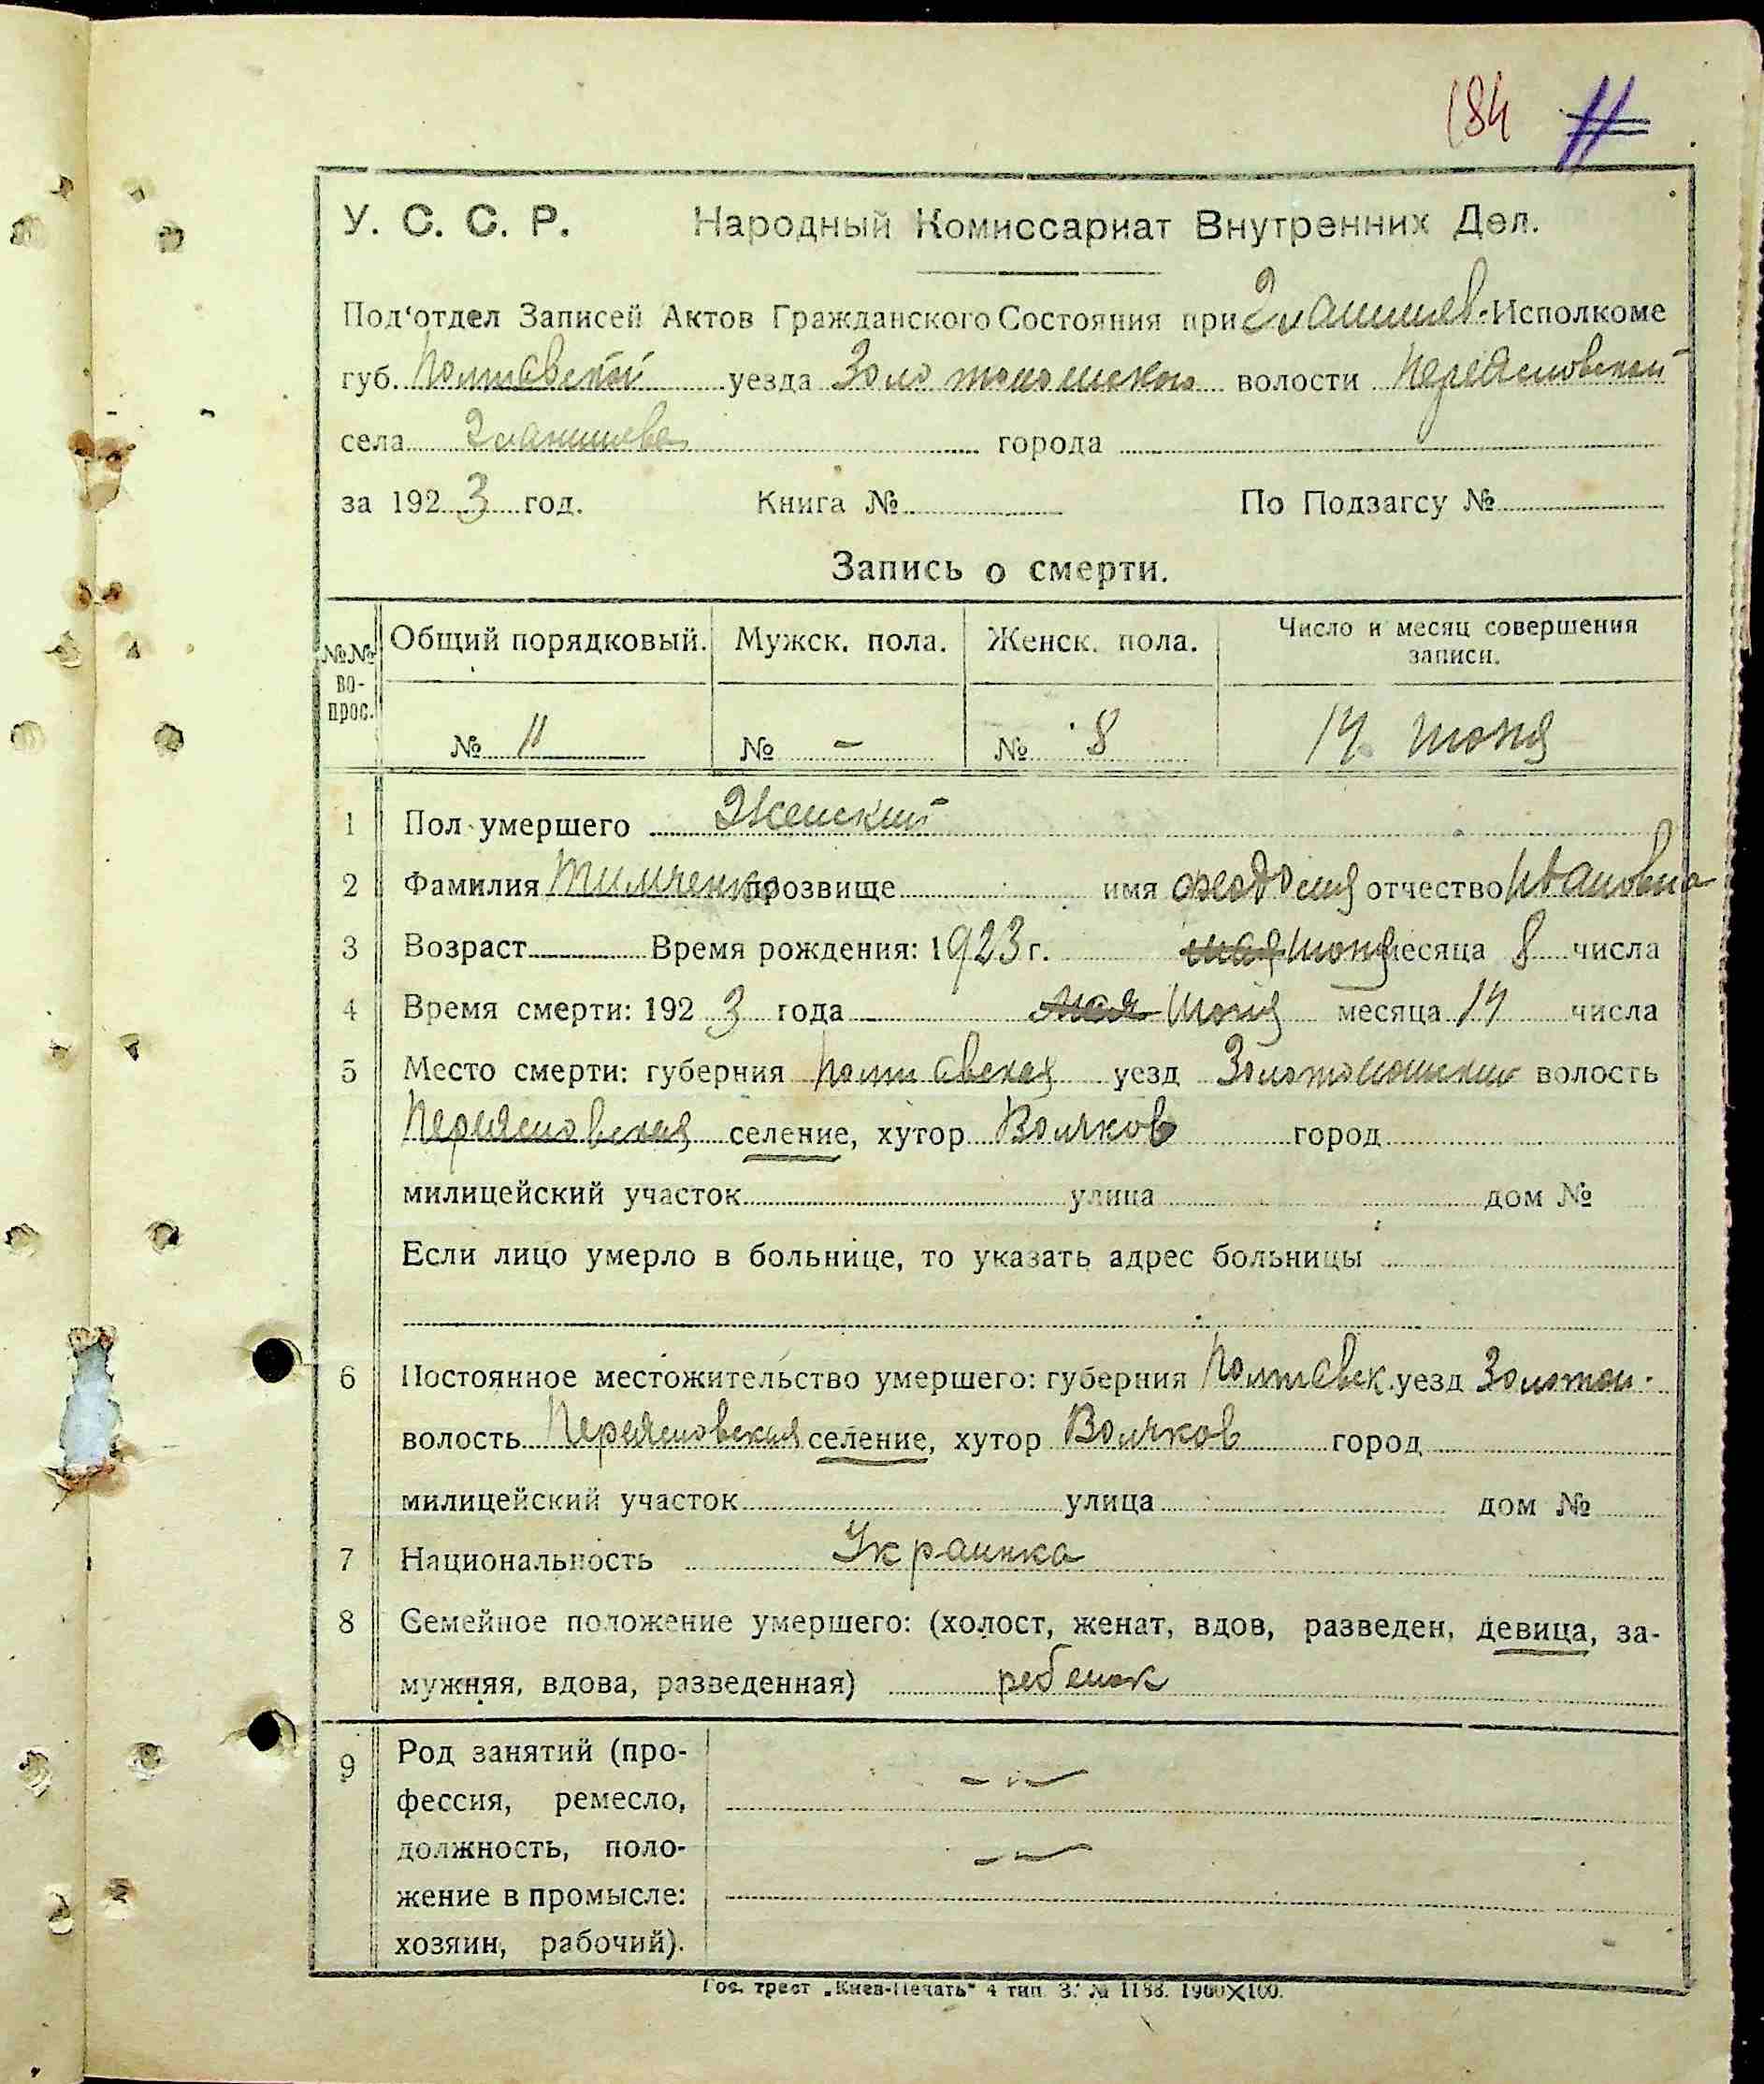 184 11
У. С. С. Р. Народный Комиссариат Внутренних Дел.
Под‘отдел Записей Актов Гражданского Состояния при Исполкоме
губ. Полтавской уезда Золотоношского волости Переясловской
села города
за 1923 год. Книга № По Подзагсу №
Запись о смерти.
№№ во-прос. Общий порядковый. Мужск. пола. Женск. пола. Число и месяц совершения записи.
№ 11 № - № 8 14 июня
1 Пол умершего Женский
2 Фамилия Тимченко прозвище имя Феодосия отчество Ивановна
3 Возраст Время рождения: 1923 г. мая июня месяца 8 числа
4 Время смерти: 1923 года мая июня месяца 14 числа
5 Место смерти: губерния Полтавская уезд Золотоношский волость
Переясловская селение, хутор Волчков город
милицейский участок улица дом №
Если лицо умерло в больнице, то указать адрес больницы
6 Постоянное местожительство умершего: губерния Полтавск. уезд Золотон.
волость Переясловская селение, хутор Волчков город
милицейский участок улица дом №
7 Национальность Украинка
8 Семейное положение умершего: (холост, женат, вдов, разведен, девица, за-
мужняя, вдова, разведенная) ребенок
9 Род занятий (про-
фессия, ремесло,
должность, поло-
жение в промысле:
хозяин, рабочий).
Гос. трест „Киев-Печать“ 4 тип. З. № 1188. 1900X100.